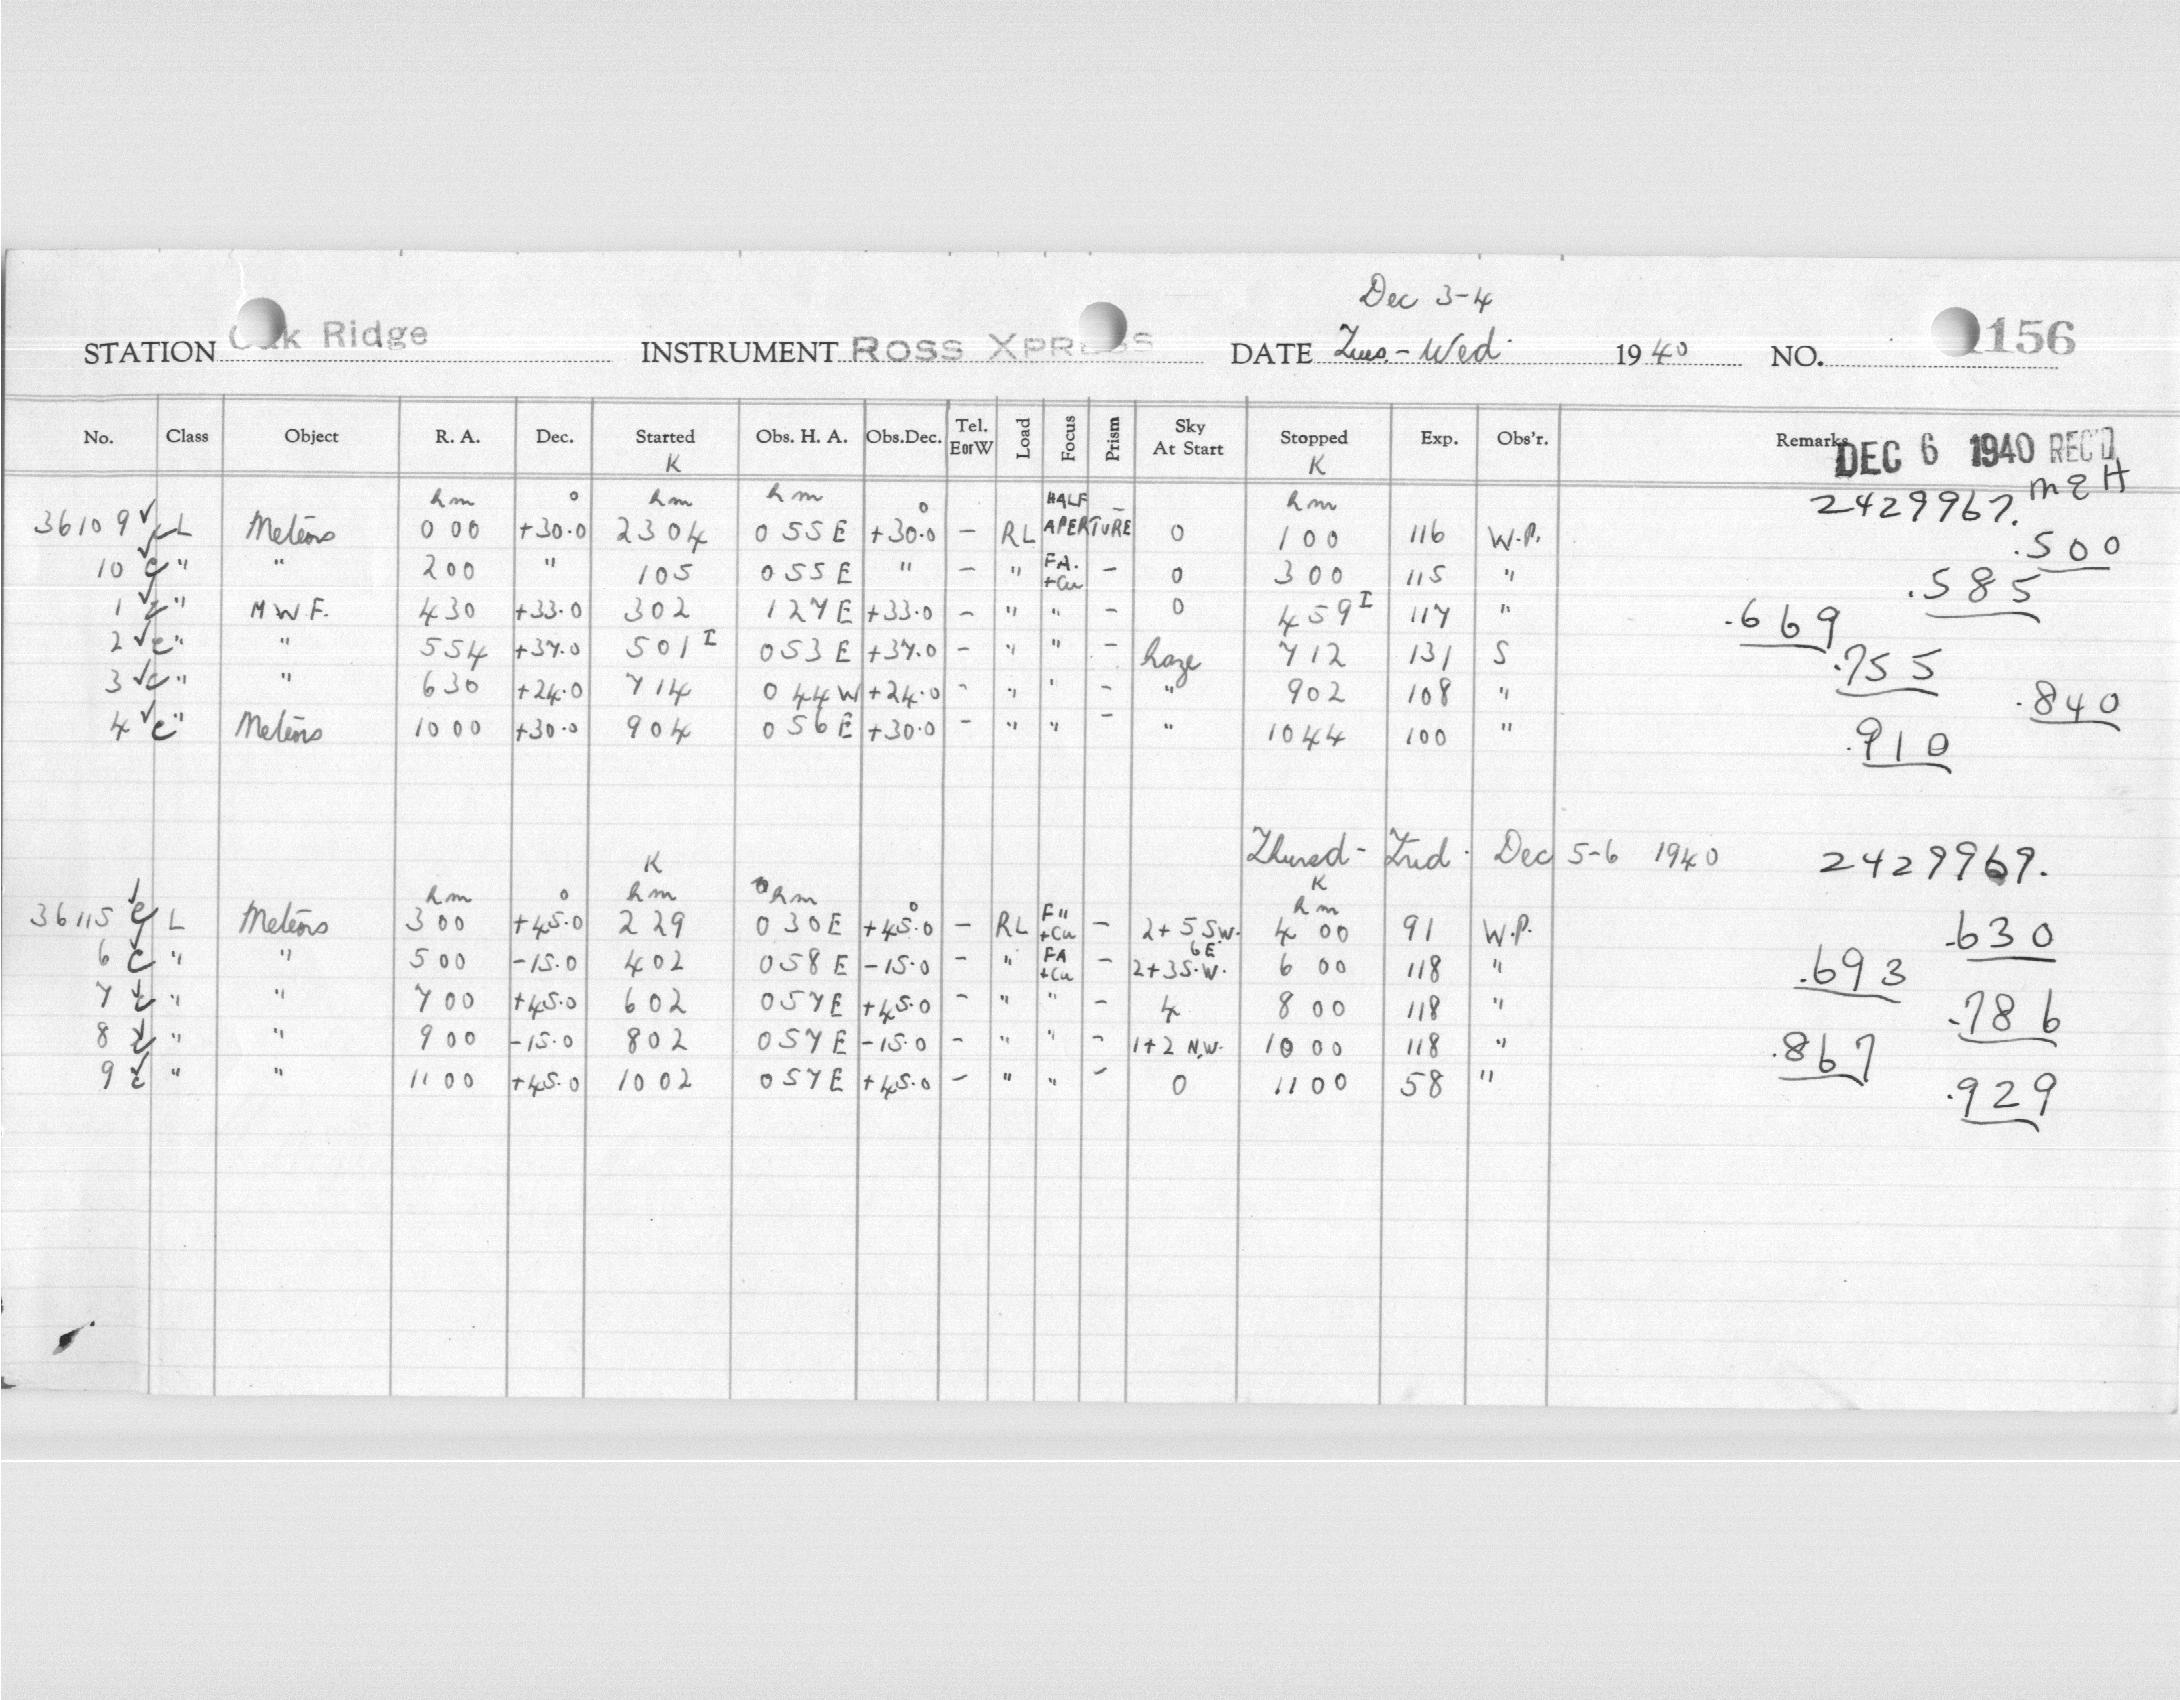 Dec 3-4
STATION Oak Ridge INSTRUMENT ROSS XPRESS DATE Tues.- Wed. 1940 NO. 156
No. Class Object R. A. Dec. Started Obs. H. A. Obs.Dec. Tel. E or W Load Focus Prism Sky At Start Stopped Exp. Obs'r. Remarks DEC 6 1940 REC'D
K K
h m ° h m h m ° HALF h m 2429967. M E H
36109 L Meteors 0 00 +30.0 23 04 0 55 E +30.0 - RL APERTURE - 0 1 00 116 W.P. .500
10 c " " 2 00 " 1 05 0 55 E " - " FA. +Cu - 0 3 00 115 " .585
1 c " M W F. 4 30 +33.0 3 02 1 27 E +33.0 - " " - 0 4 59 I 117 " .669
2 c " " 5 54 +37.0 5 01 I 0 53 E +37.0 - " " - haze 7 12 131 S .755
3 c " " 6 30 +24.0 7 14 0 44 W +24.0 - " " - " 9 02 108 " .840
4 c " Meteors 10 00 +30.0 9 04 0 56 E +30.0 - " " - " 10 44 100 " .910
Thursd - Frid. Dec 5-6 1940 2429969.
K K
h m ° h m h m ° h m
36115 c L Meteors 3 00 +45.0 2 29 0 30 E +45.0 - RL F" +Cu - 2+5 S.W. 4 00 91 W.P. .630
6 c " " 5 00 -15.0 4 02 0 58 E -15.0 - " FA +Cu - 2+3 S.W. 6 E 6 00 118 " .693
7 c " " 7 00 +45.0 6 02 0 57 E +45.0 - " " - 4 8 00 118 " .786
8 c " " 9 00 -15.0 8 02 0 57 E -15.0 - " " - 1+2 N.W. 10 00 118 " .867
9 c " " 11 00 +45.0 10 02 0 57 E +45.0 - " " - 0 11 00 58 " .929